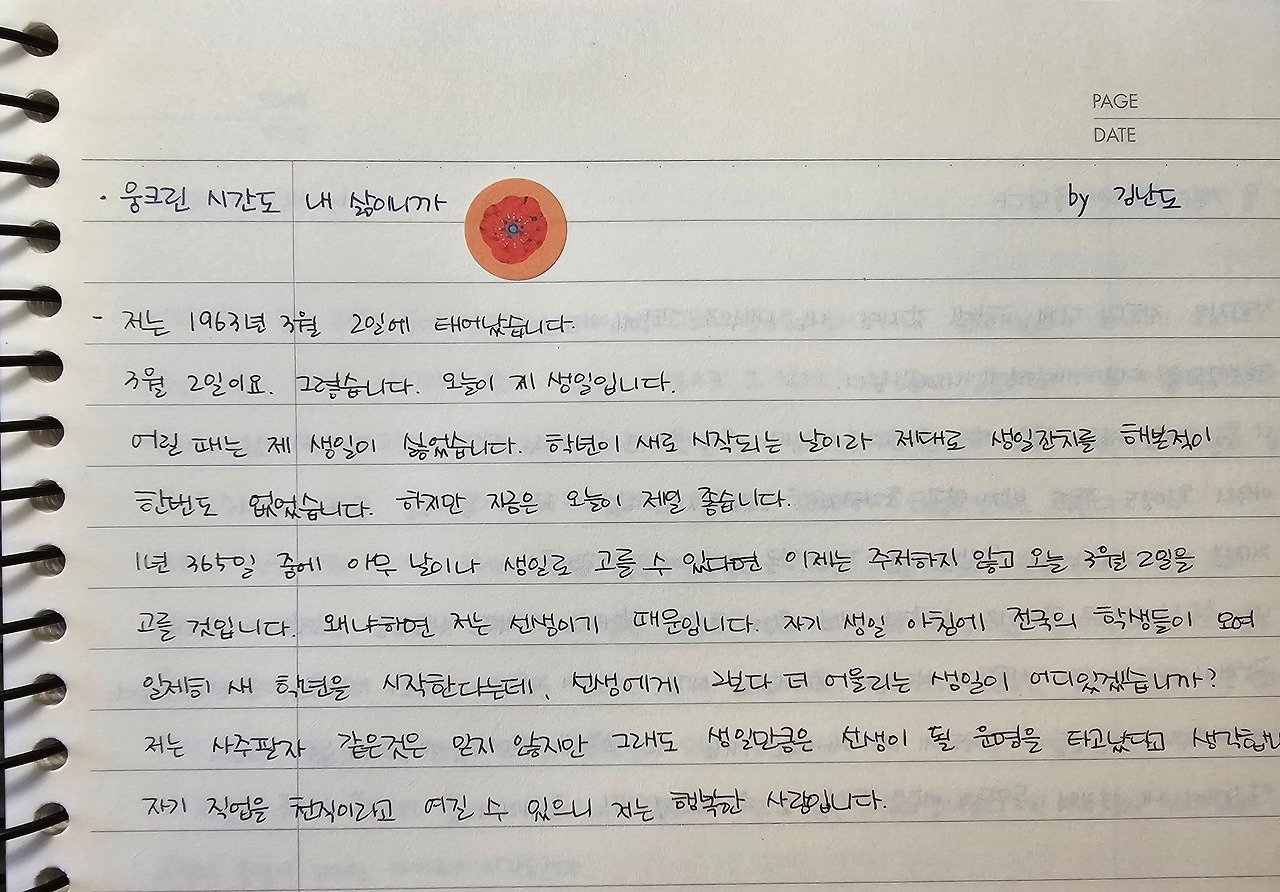 PAGE
DATE
· 웅크린 시간도 내 삶이니까 by 김난도
- 저는 1963년 3월 2일에 태어났습니다.
3월 2일이요. 그렇습니다. 오늘이 제 생일입니다.
어릴 때는 제 생일이 싫었습니다. 학년이 새로 시작되는 날이라 제대로 생일잔치를 해본적이
한번도 없었습니다. 하지만 지금은 오늘이 제일 좋습니다.
1년 365일 중에 아무 날이나 생일로 고를 수 있다면 이제는 주저하지 않고 오늘 3월 2일을
고를 것입니다. 왜냐하면 저는 선생이기 때문입니다. 자기 생일 아침에 전국의 학생들이 모여
일제히 새 학년을 시작한다는데, 선생에게 그보다 더 어울리는 생일이 어디있겠습니까?
저는 사주팔자 같은것은 믿지 않지만 그래도 생일만큼은 선생이 될 운명을 타고났다고 생각합니
자기 직업을 천직이라고 여길 수 있으니 저는 행복한 사람입니다.